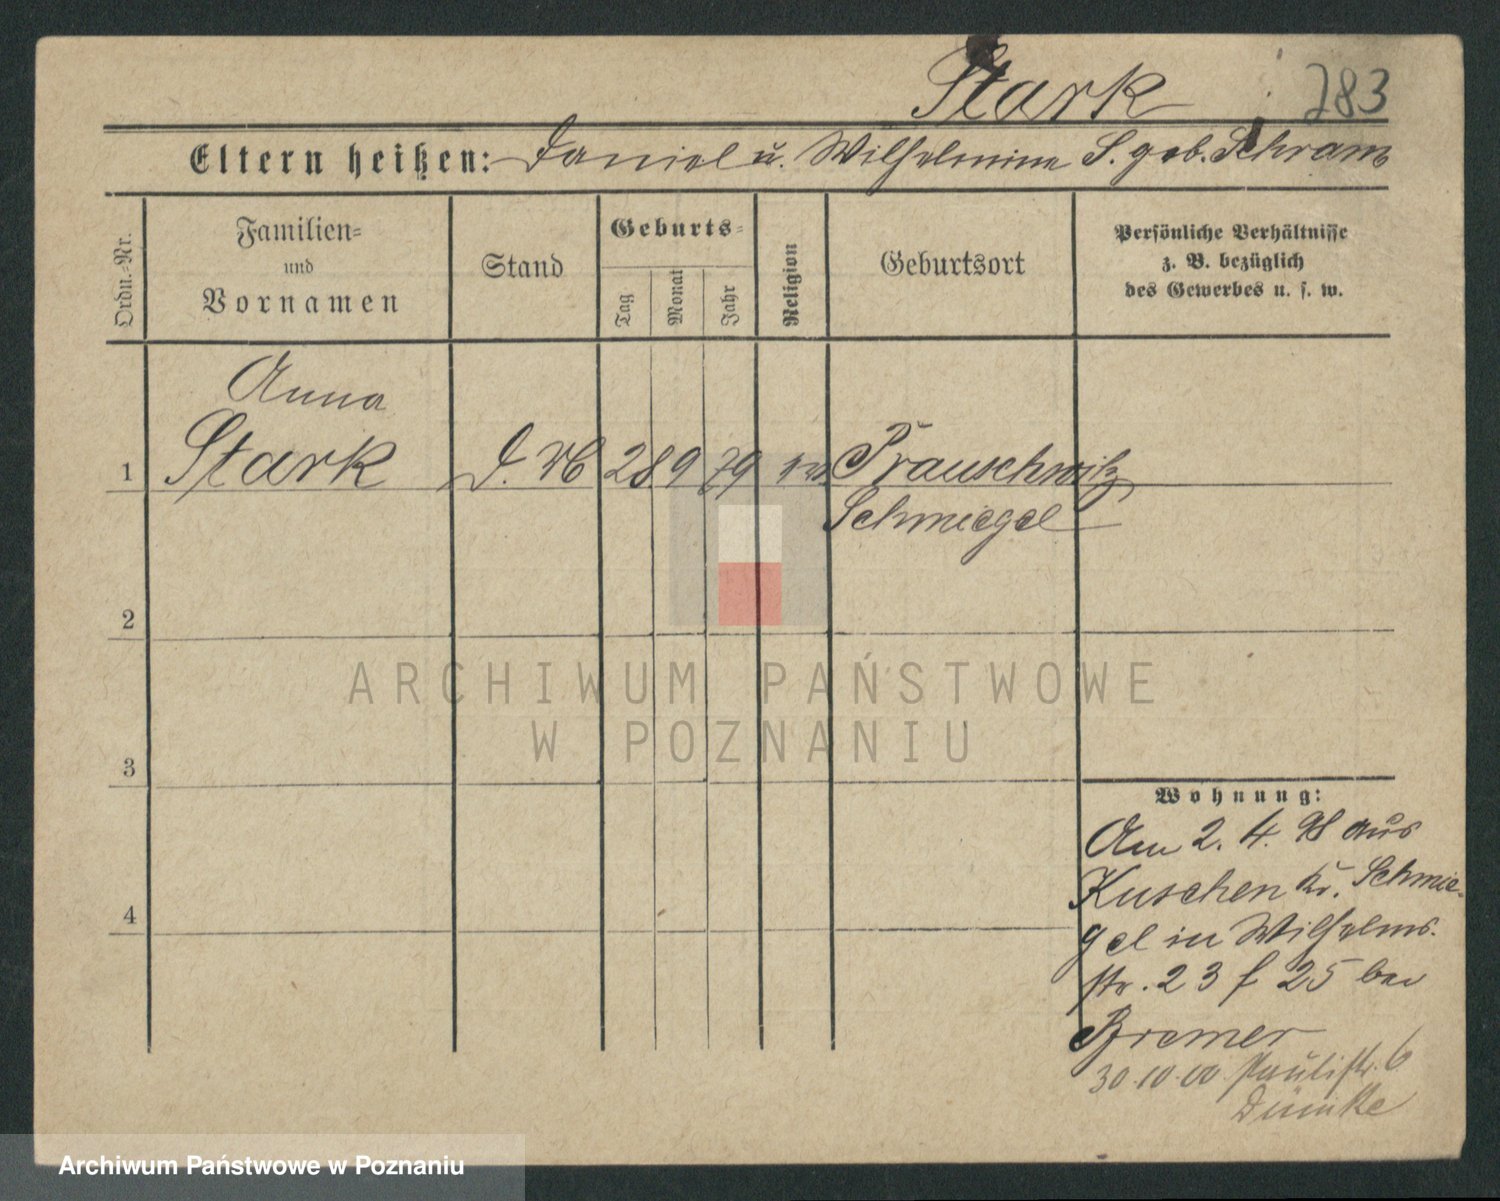 Stark 283
Eltern heißen: Daniel u. Wilhelmine S. geb. Schram
Ordn.=Nr.
Familien=
und
Vornamen
Stand
Geburts=
Tag
Monat
Jahr
Religion
Geburtsort
Persönliche Verhältnisse
z. B. bezüglich
des Gewerbes u. s. w.
Anna
1 Stark D. 28 9 79 Prauschwitz
Schmiegel
2
ARCHIWUM PAŃSTWOWE
W POZNANIU
3
Wohnung:
Am 2. 4. 98 aus
Kuschen Kr. Schmie-
4
gel in Wilhelms-
str. 23 f 25 bei
Bremer
30.10.00 Paulistr. 6
Dümke
Archiwum Państwowe w Poznaniu